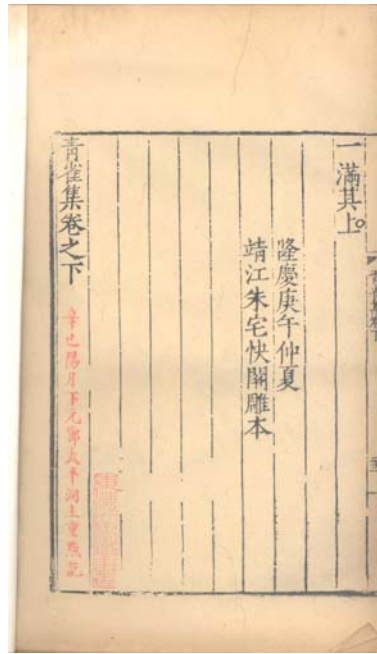 一滿其上。
隆慶庚午仲夏
靖江朱宅快閣雕本
青雀集卷之下
辛巳陽月下元太平洞主重記